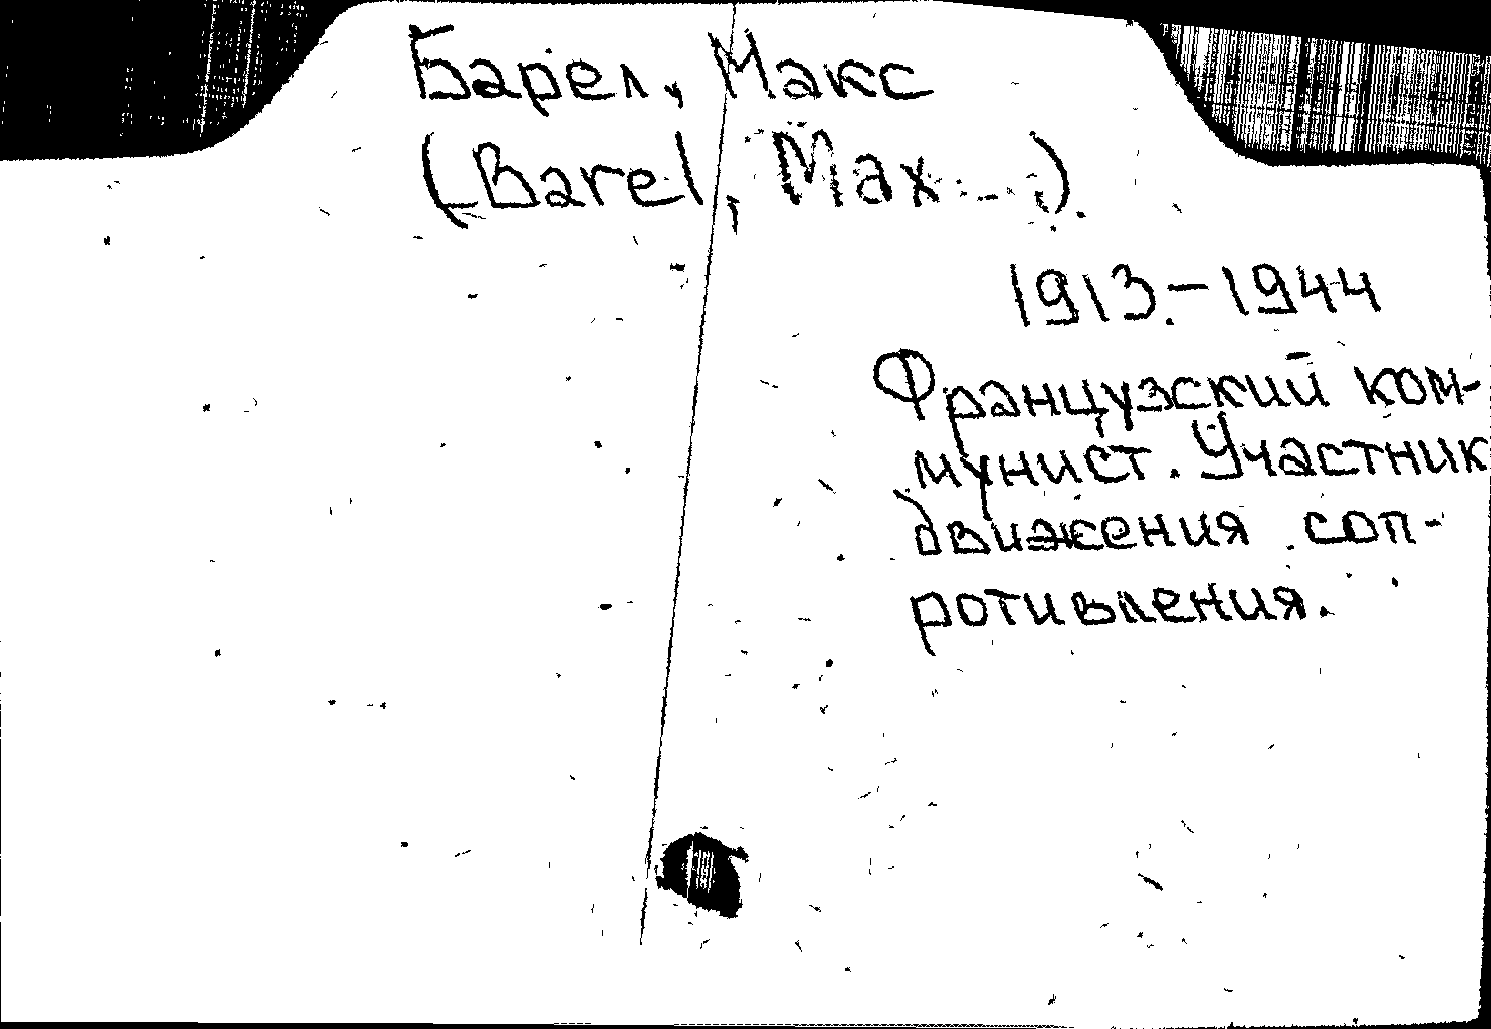 Барел, Макс
(Barel, Max ...).
1913.-1944
Французский ком-
мунист. Участник
движения соп-
ротивления.